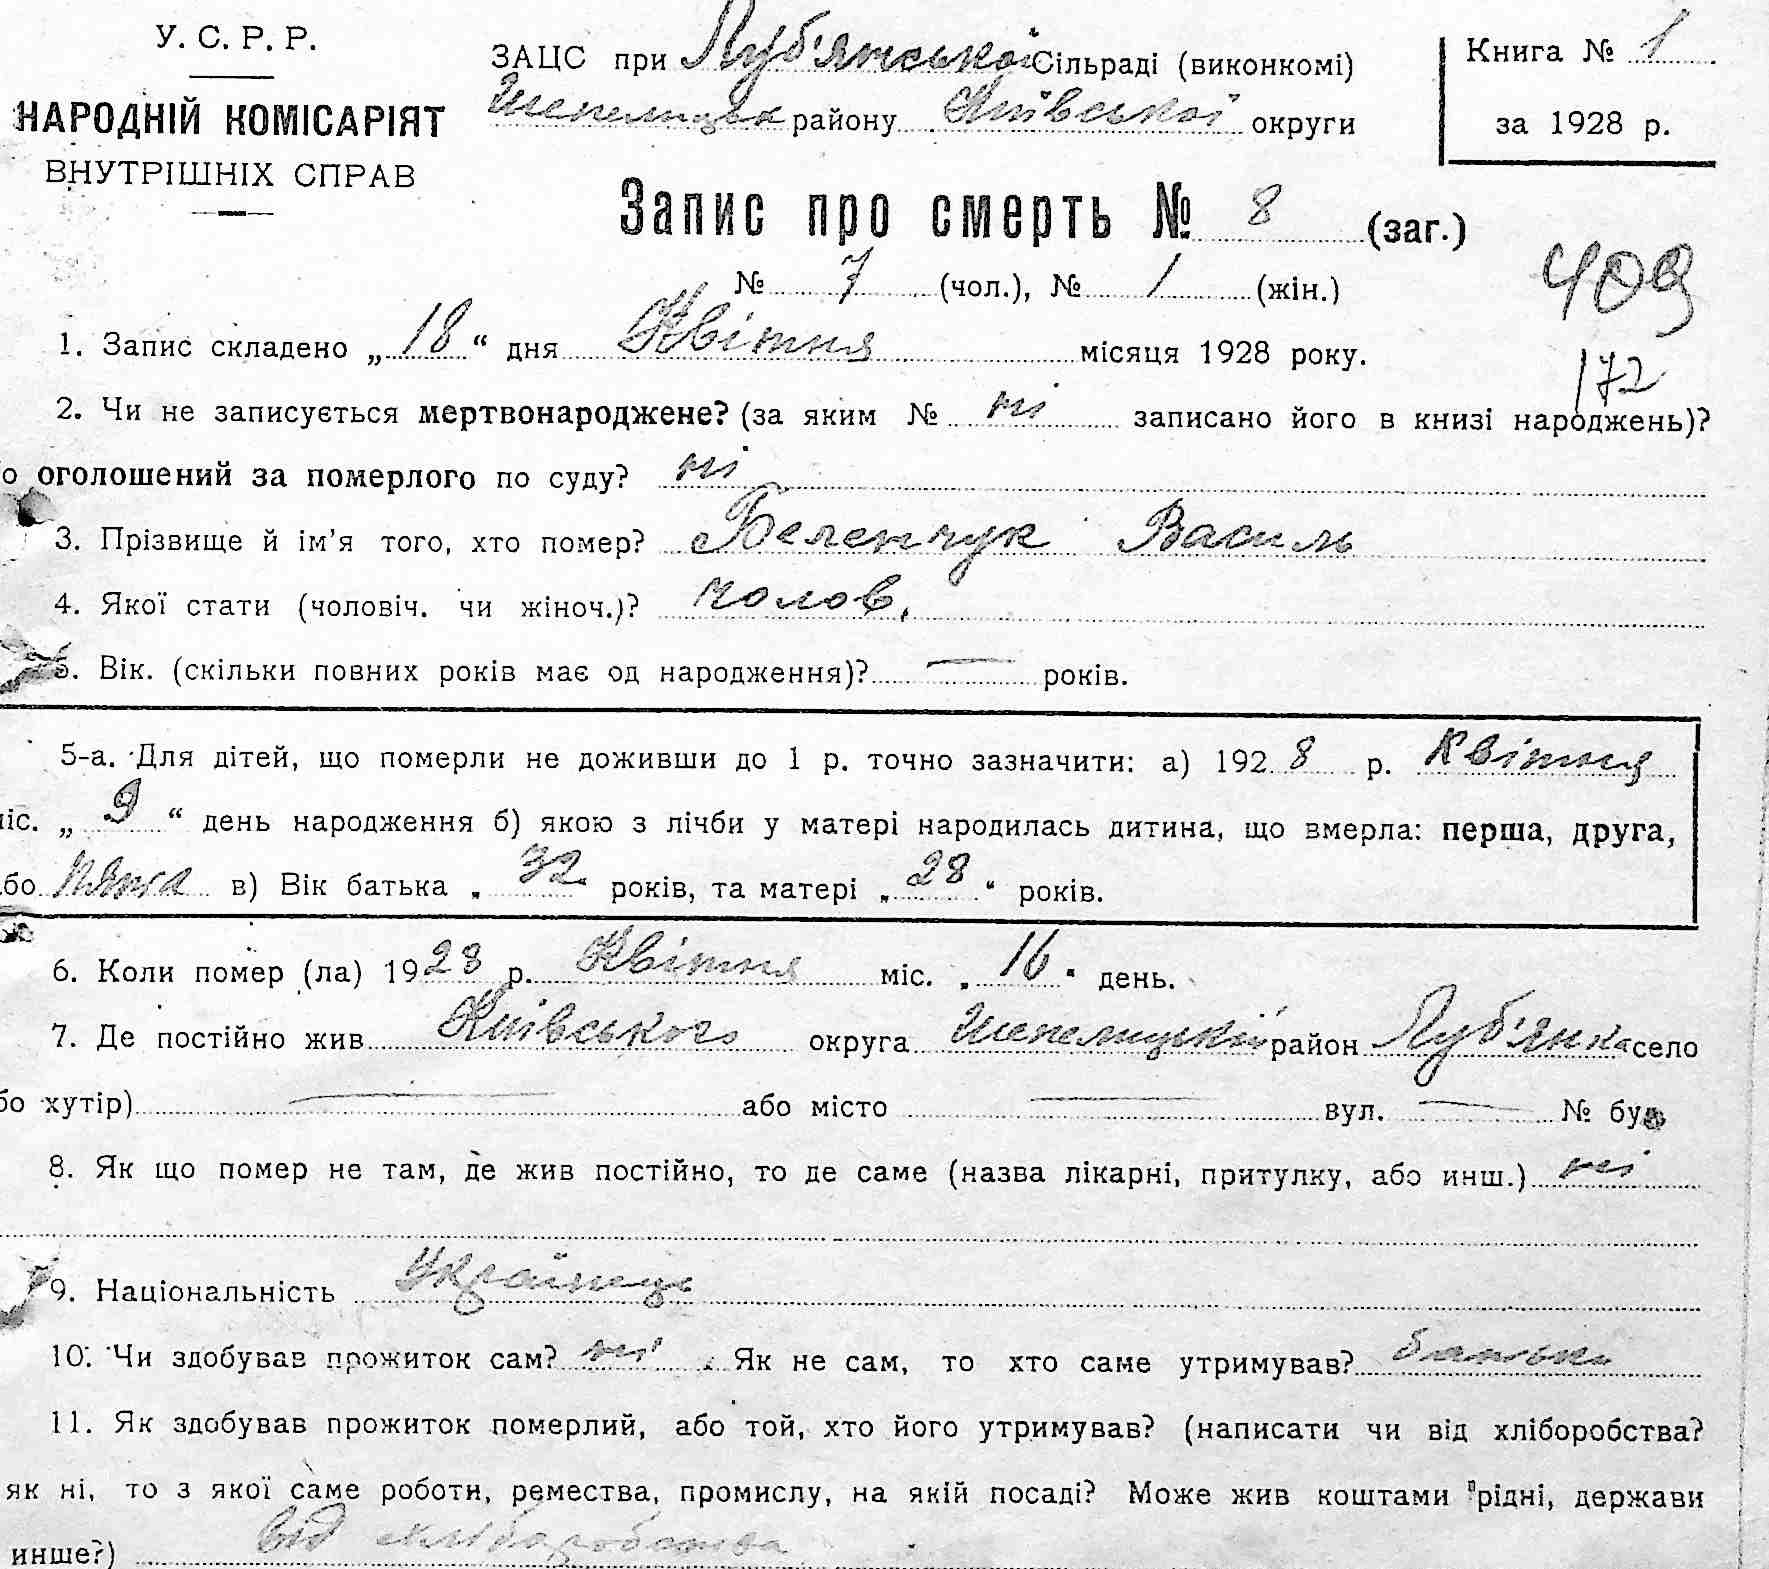 У. С. Р. Р.
НАРОДНІЙ КОМІСАРІЯТ
ВНУТРІШНІХ СПРАВ
ЗАЦС при Луб'янської Сільраді (виконкомі)
Шепелицьк району Київської округи
Книга № 1
за 1928 р.
Запис про смерть № 8 (заг.)
№ 7 (чол.), № 1 (жін.)
409
1. Запис складено „18“ дня Квітня місяця 1928 року.
172
2. Чи не записується мертвонароджене? (за яким № ні записано його в книзі народжень)?
о оголошений за померлого по суду? ні
3. Прізвище й ім'я того, хто помер? Беленчук Василь
4. Якої стати (чоловіч. чи жіноч.)? чолов.
5. Вік. (скільки повних років має од народження)? — років.
5-а. Для дітей, що померли не доживши до 1 р. точно зазначити: а) 1928 р. Квітня
міс. „9“ день народження б) якою з лічби у матері народилась дитина, що вмерла: перша, друга,
або пята в) Вік батька „32 років, та матері „28“ років.
6. Коли помер (ла) 1928 р. Квітня міс. „16“ день.
7. Де постійно жив Київського округа Шепелицький район Луб'янка село
бо хутір) — або місто — вул. — № буд
8. Як що помер не там, де жив постійно, то де саме (назва лікарні, притулку, або инш.) ні
9. Національність Українець
10. Чи здобував прожиток сам? ні. Як не сам, то хто саме утримував? батьки
11. Як здобував прожиток померлий, або той, хто його утримував? (написати чи від хліборобства?
як ні, то з якої саме роботи, ремества, промислу, на якій посаді? Може жив коштами рідні, держави
инше?) від хліборобства